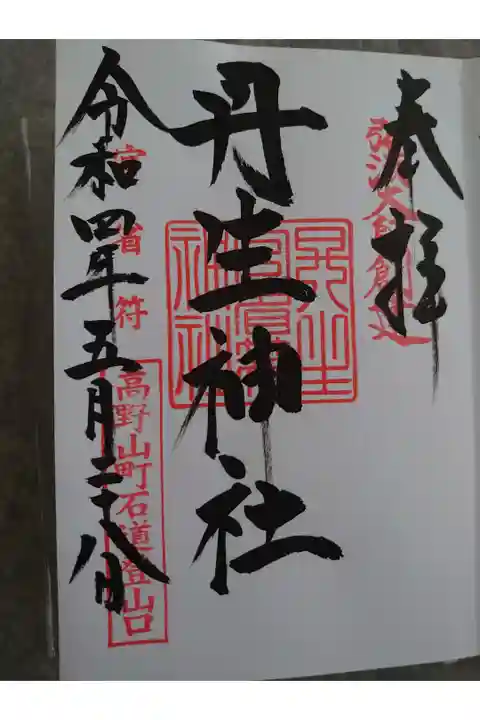 奉拝
弘法大師創建
丹生神社
令和四年五月二十八日
宮省符
高野山町石道登山口